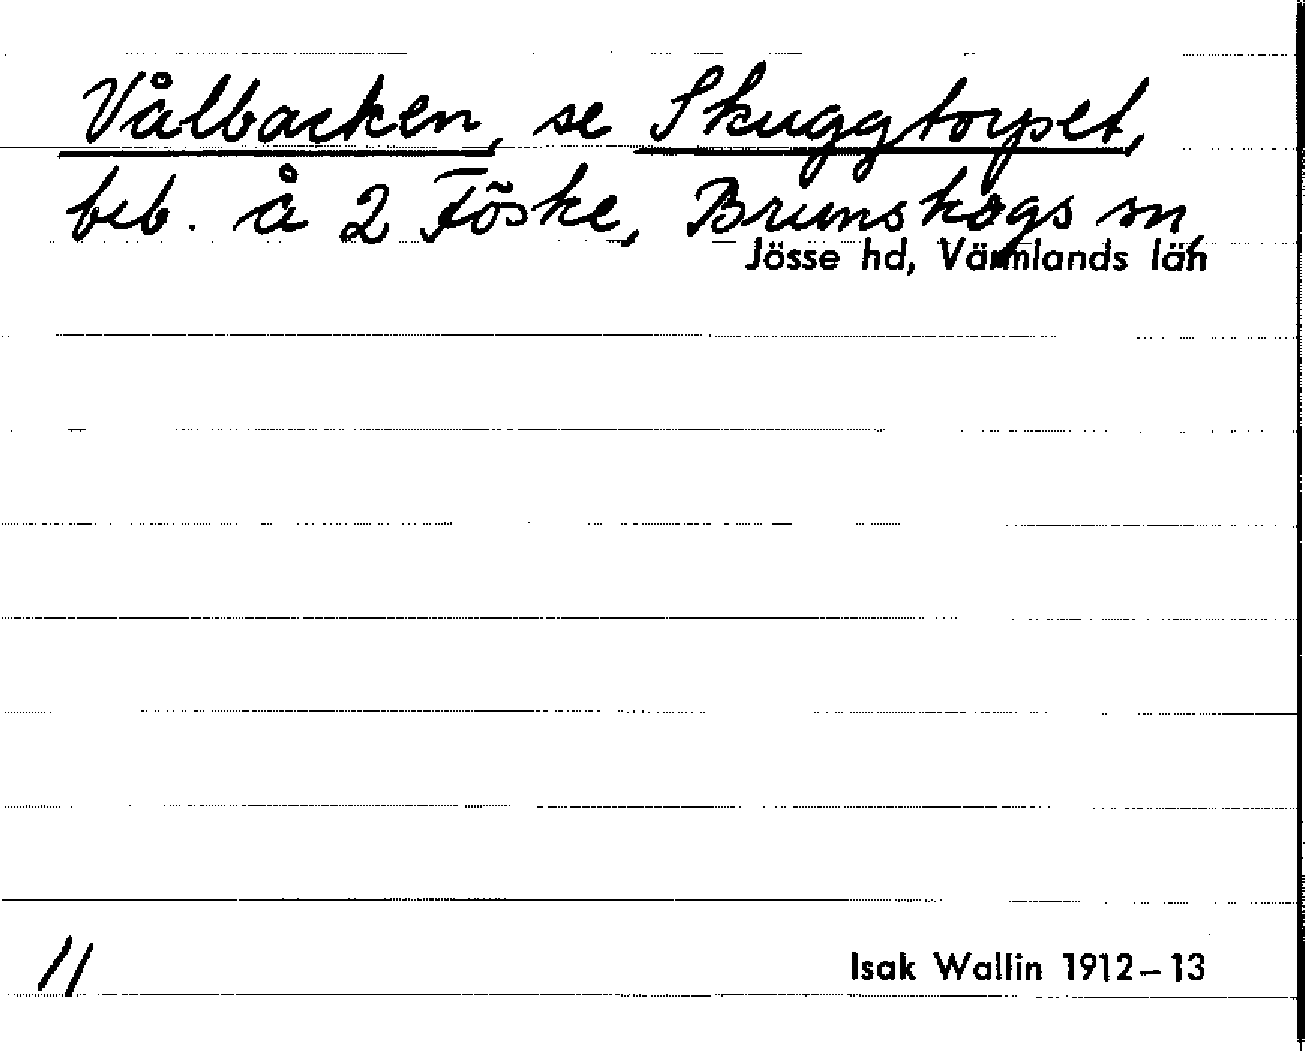 Vålbacken, se Skuggtorpet,
beb. å 2 Föske, Brunskogs sn,
Jösse hd, Värmlands län
11
Isak Wallin 1912–13